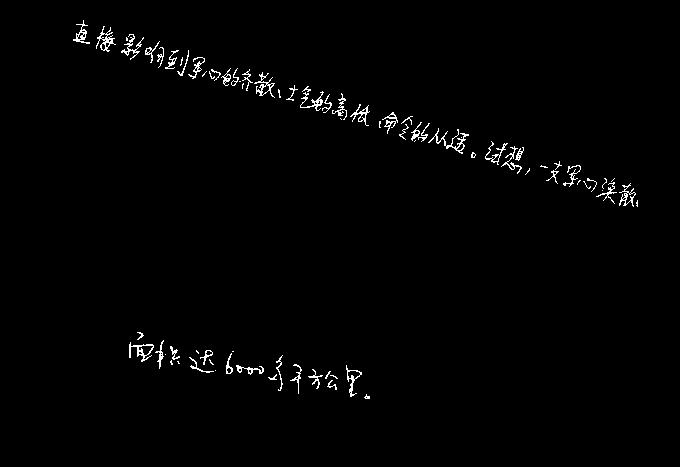 直接影响到军心的齐散、士气的高低、命令的从违。试想，一支军心涣散、
面积达6000多平方公里。